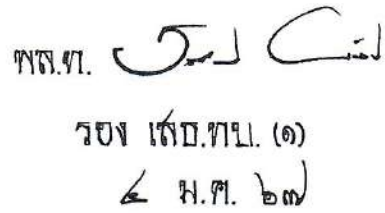 พล.ท.
รอง เสธ.ทบ. (๑)
๔ ม.ค. ๒๗